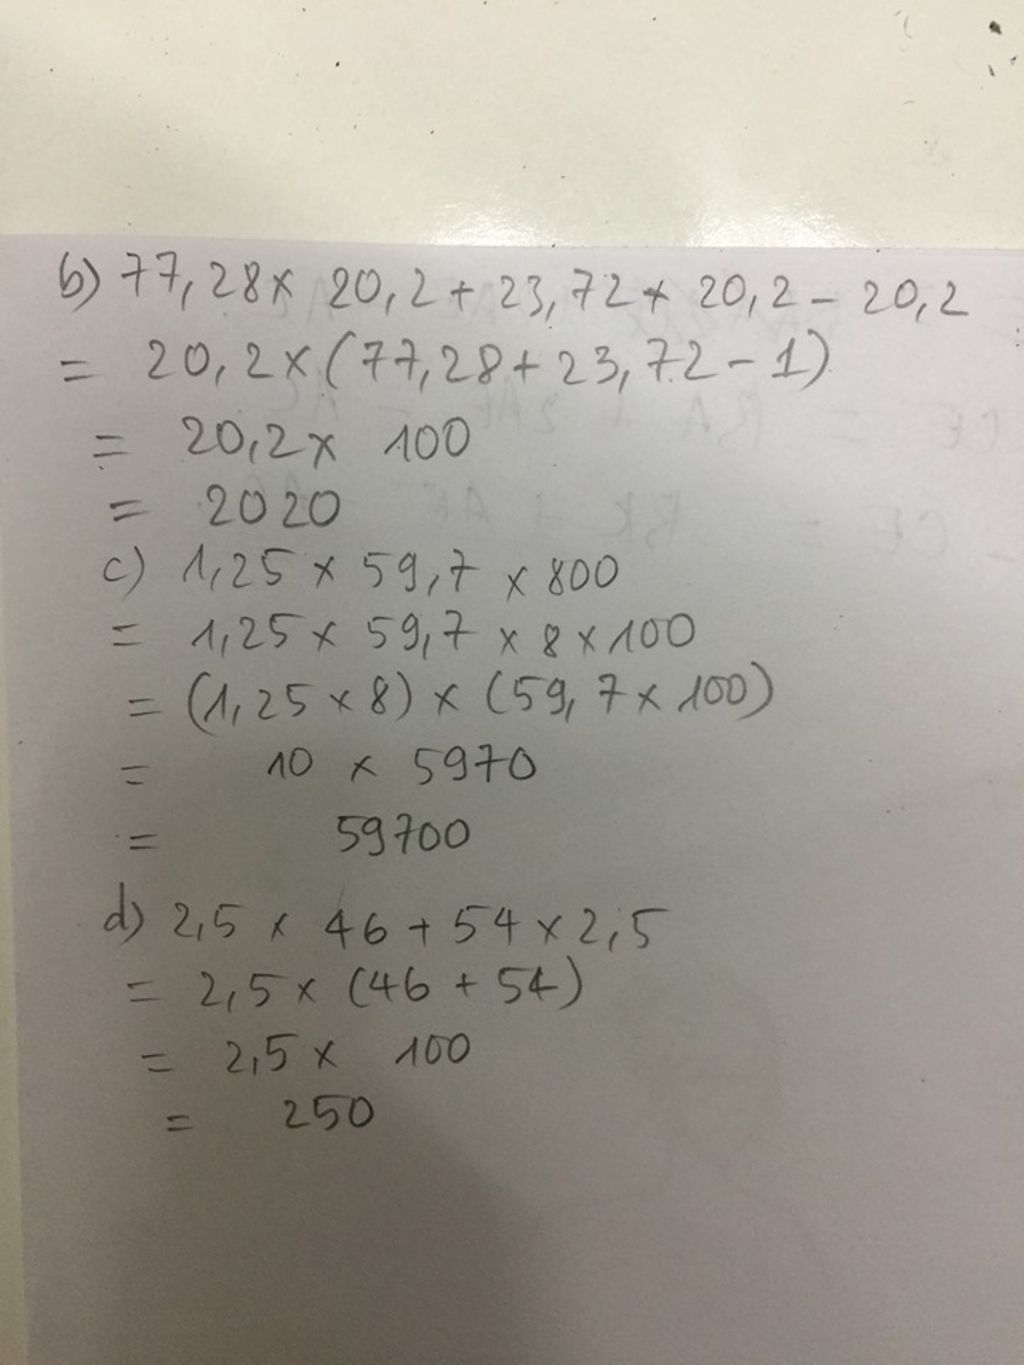 b) 77,28 x 20,2 + 23,72 x 20,2 - 20,2
= 20,2 x (77,28 + 23,72 - 1)
= 20,2 x 100
= 2020
c) 1,25 x 59,7 x 800
= 1,25 x 59,7 x 8 x 100
= (1,25 x 8) x (59,7 x 100)
= 10 x 5970
= 59700
d) 2,5 x 46 + 54 x 2,5
= 2,5 x (46 + 54)
= 2,5 x 100
= 250